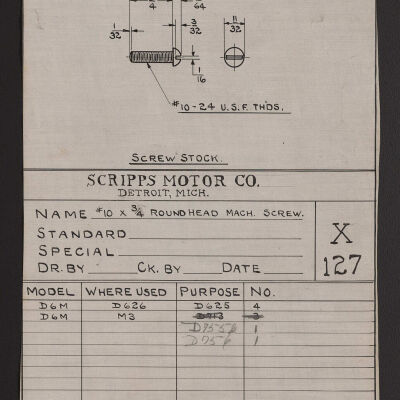 4 64
1/32 3/32 11/32
1/16
#10-24 U.S.F. THDS.
SCREW STOCK.
SCRIPPS MOTOR CO.
DETROIT, MICH.
NAME #10 X 3/4 ROUNDHEAD MACH. SCREW.
STANDARD
SPECIAL
DR. BY CK. BY DATE
X
127
MODEL WHERE USED PURPOSE NO.
D6M D626 D625 4
D6M M3 3
D755b 1
D756 1